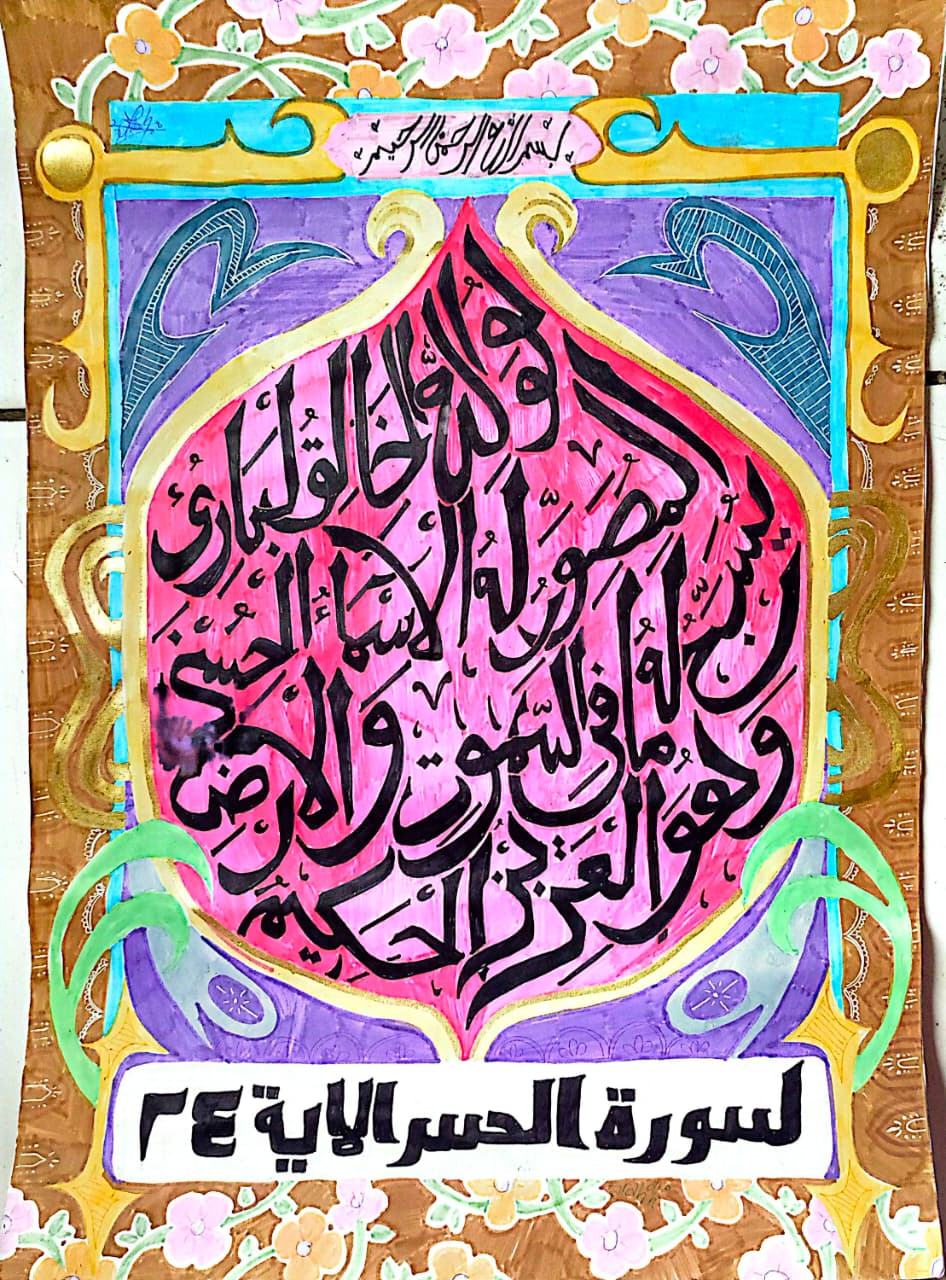 بسم الله الرحمن الرحيم
هو الله الخالق البارئ
المصور له الاسماء الحسنى
يسبح له ما في السموت والارض
وهو العزيز الحكيم
سورة الحسر الاية ٢٤